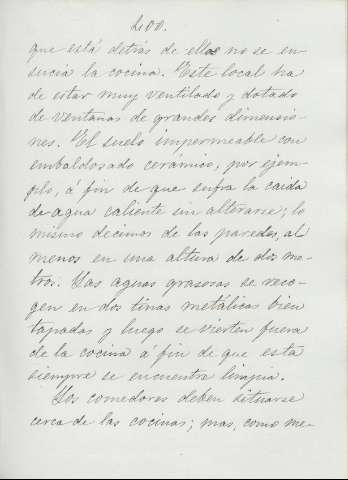 200.
que está detrás de ellos no se en-
sucia la cocina. Este local ha
de estar muy ventilado y dotado
de ventanas de grandes dimensio-
nes. El suelo impermeable con
embaldosado cerámico, por ejem-
plo, á fin de que sufra la caida
de agua caliente sin alterarse; lo
mismo decimos de las paredes, al
menos en una altura de dos me-
tros. Las aguas grasosas se reco-
gen en dos tinas metálicas bien
tapadas y luego se vierten fuera
de la cocina á fin de que esta
siempre se encuentre limpia.
Los comedores deben situarse
cerca de las cocinas; mas, como me-